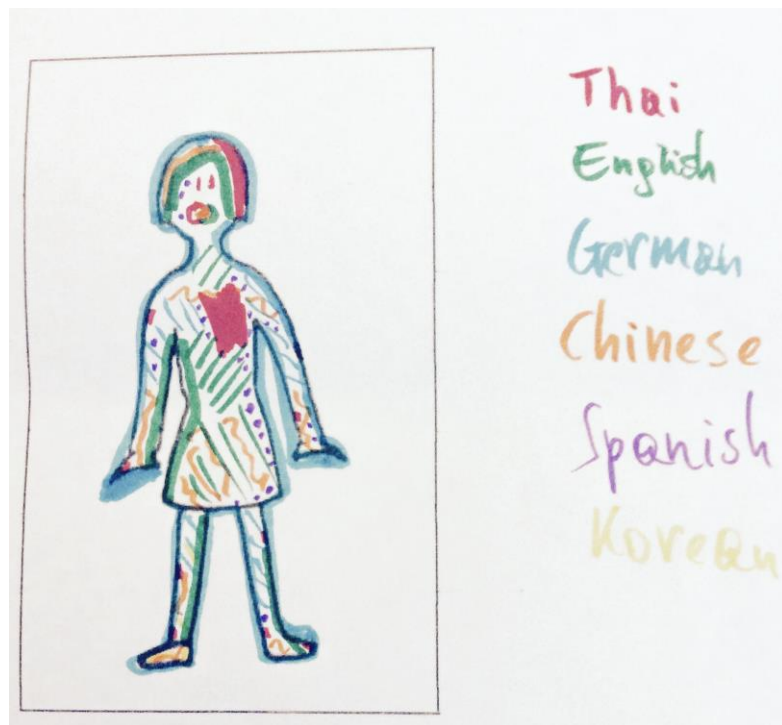 Thai
English
German
Chinese
Spanish
Korean